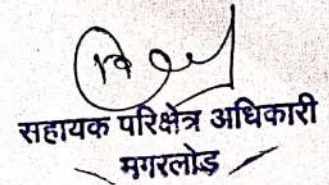 सहायक परिक्षेत्र अधिकारी
मगरलोड